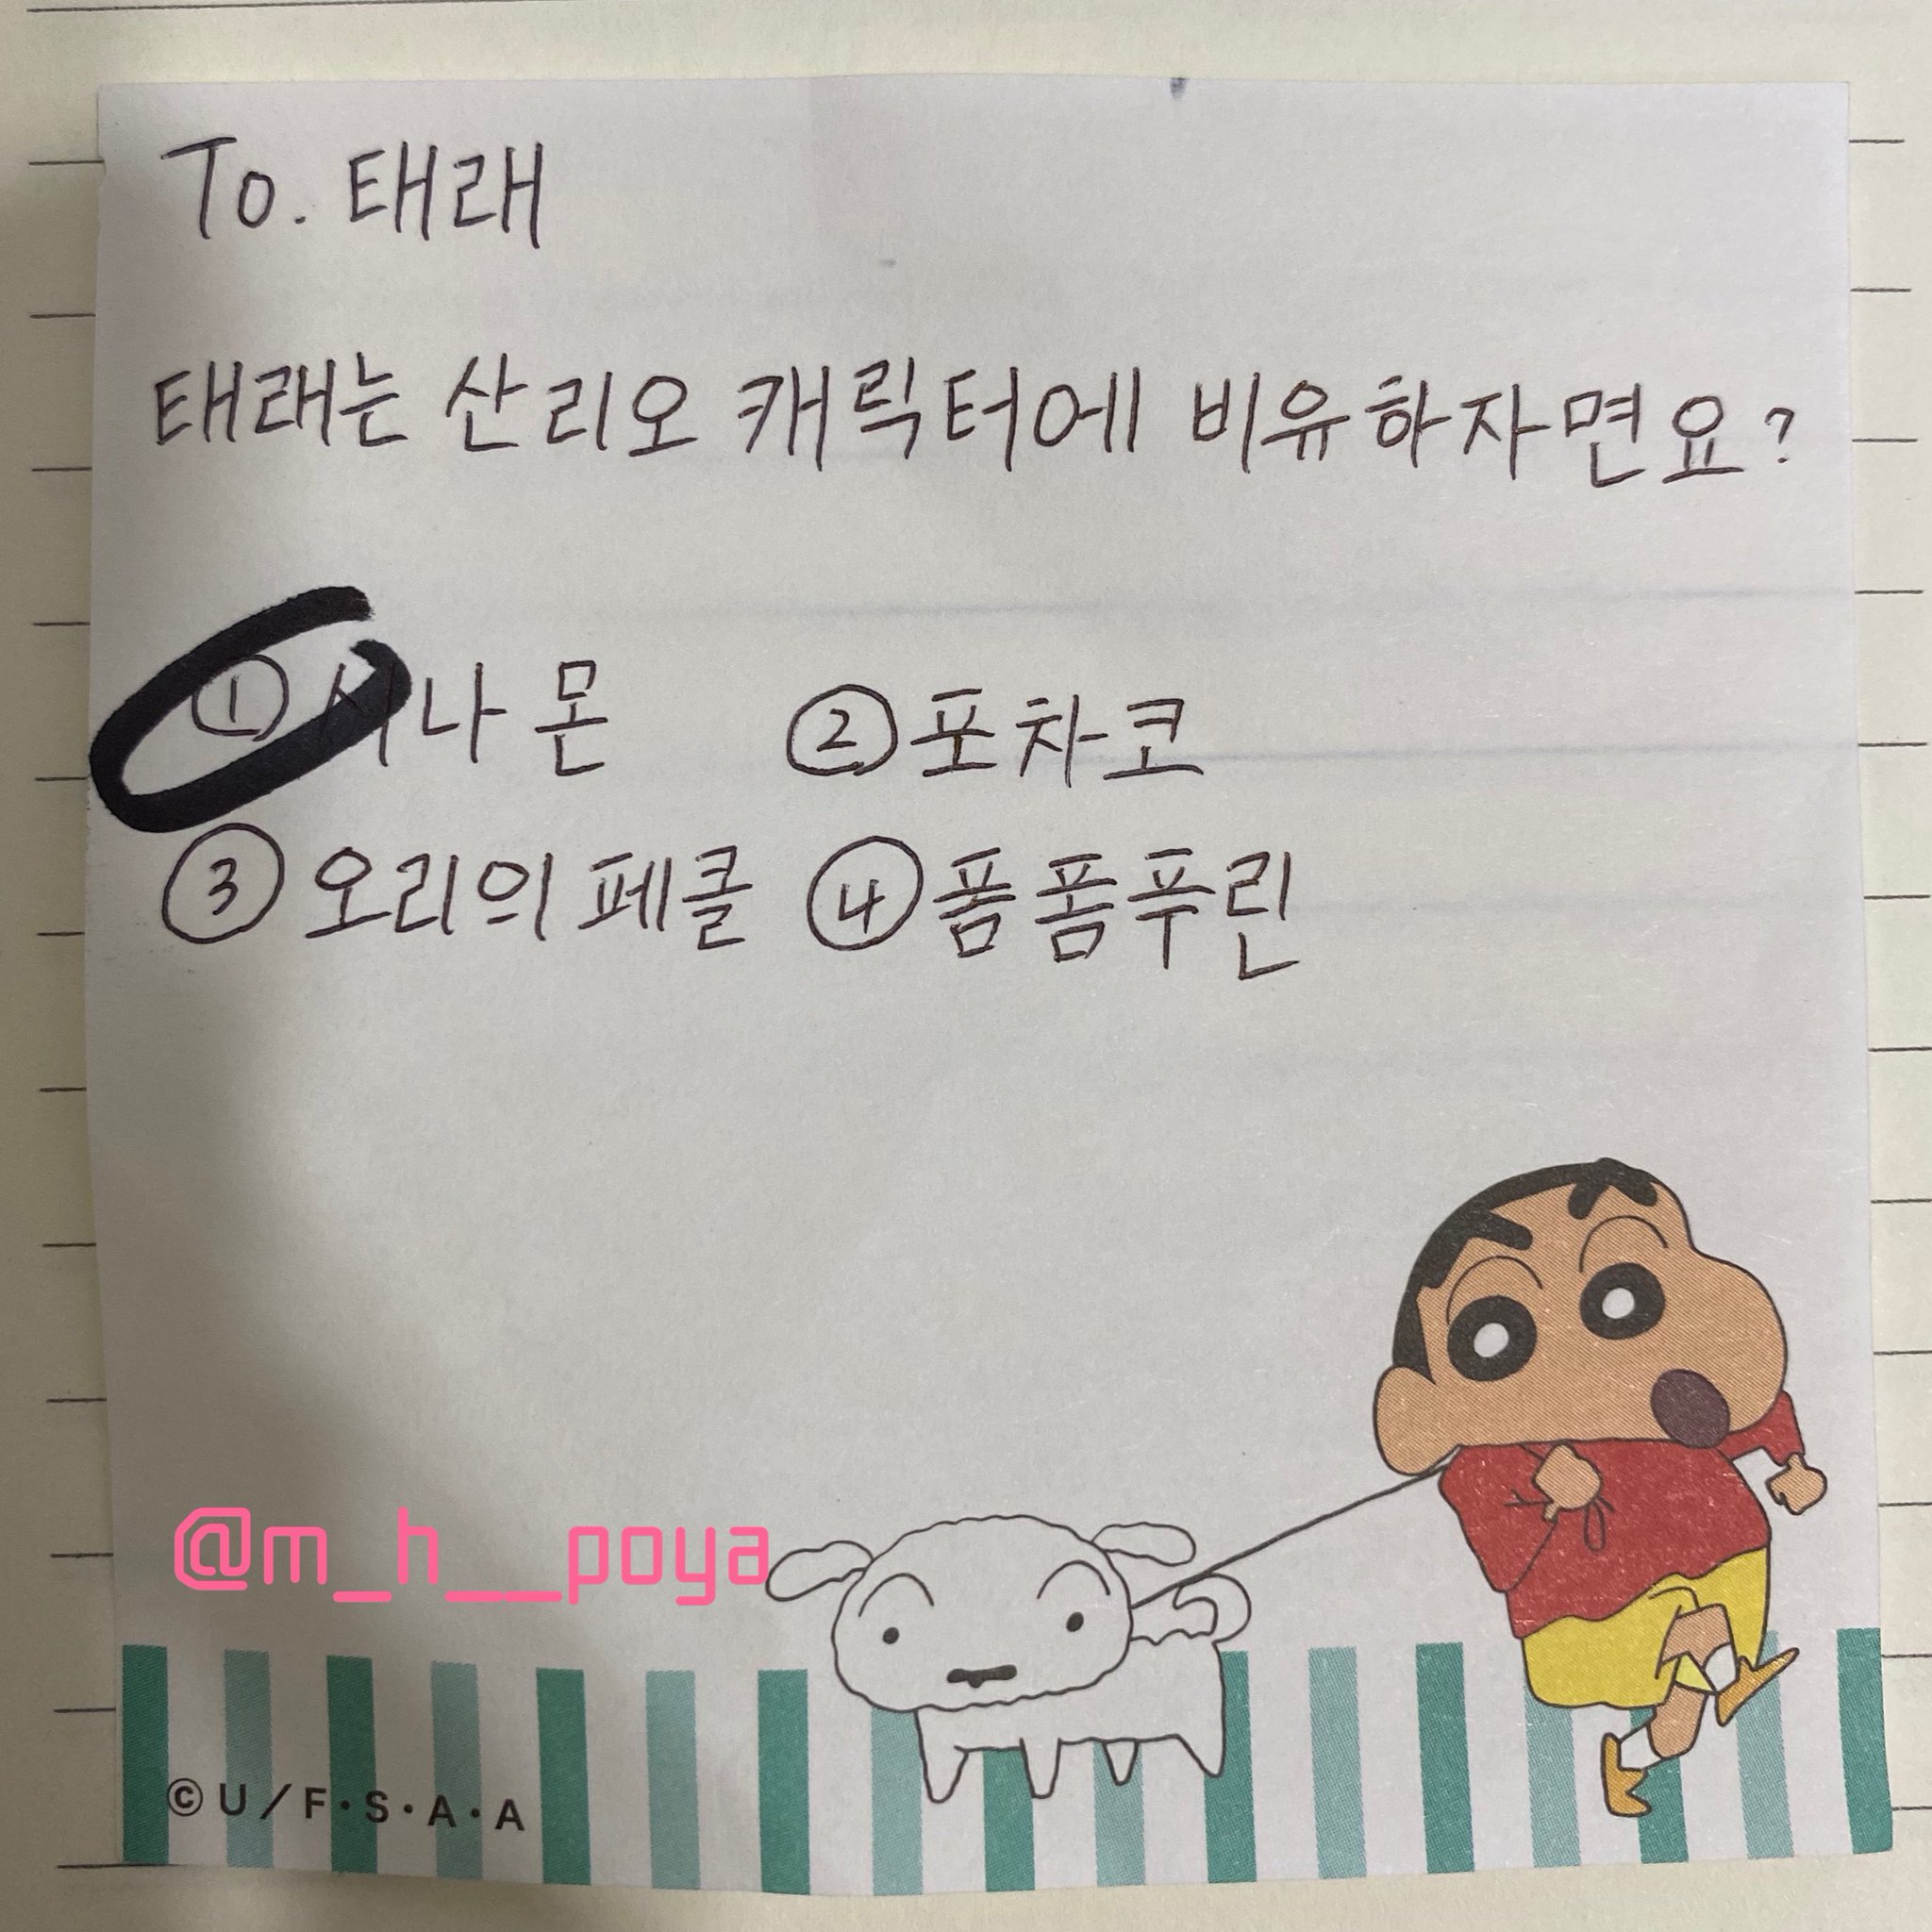 To. 태래
태래는 산리오 캐릭터에 비유하자면요?
① 시나몬 ② 포차코
③ 오리의 페클 ④ 폼폼푸린
@m_h__poya
©U/F・S・A・A